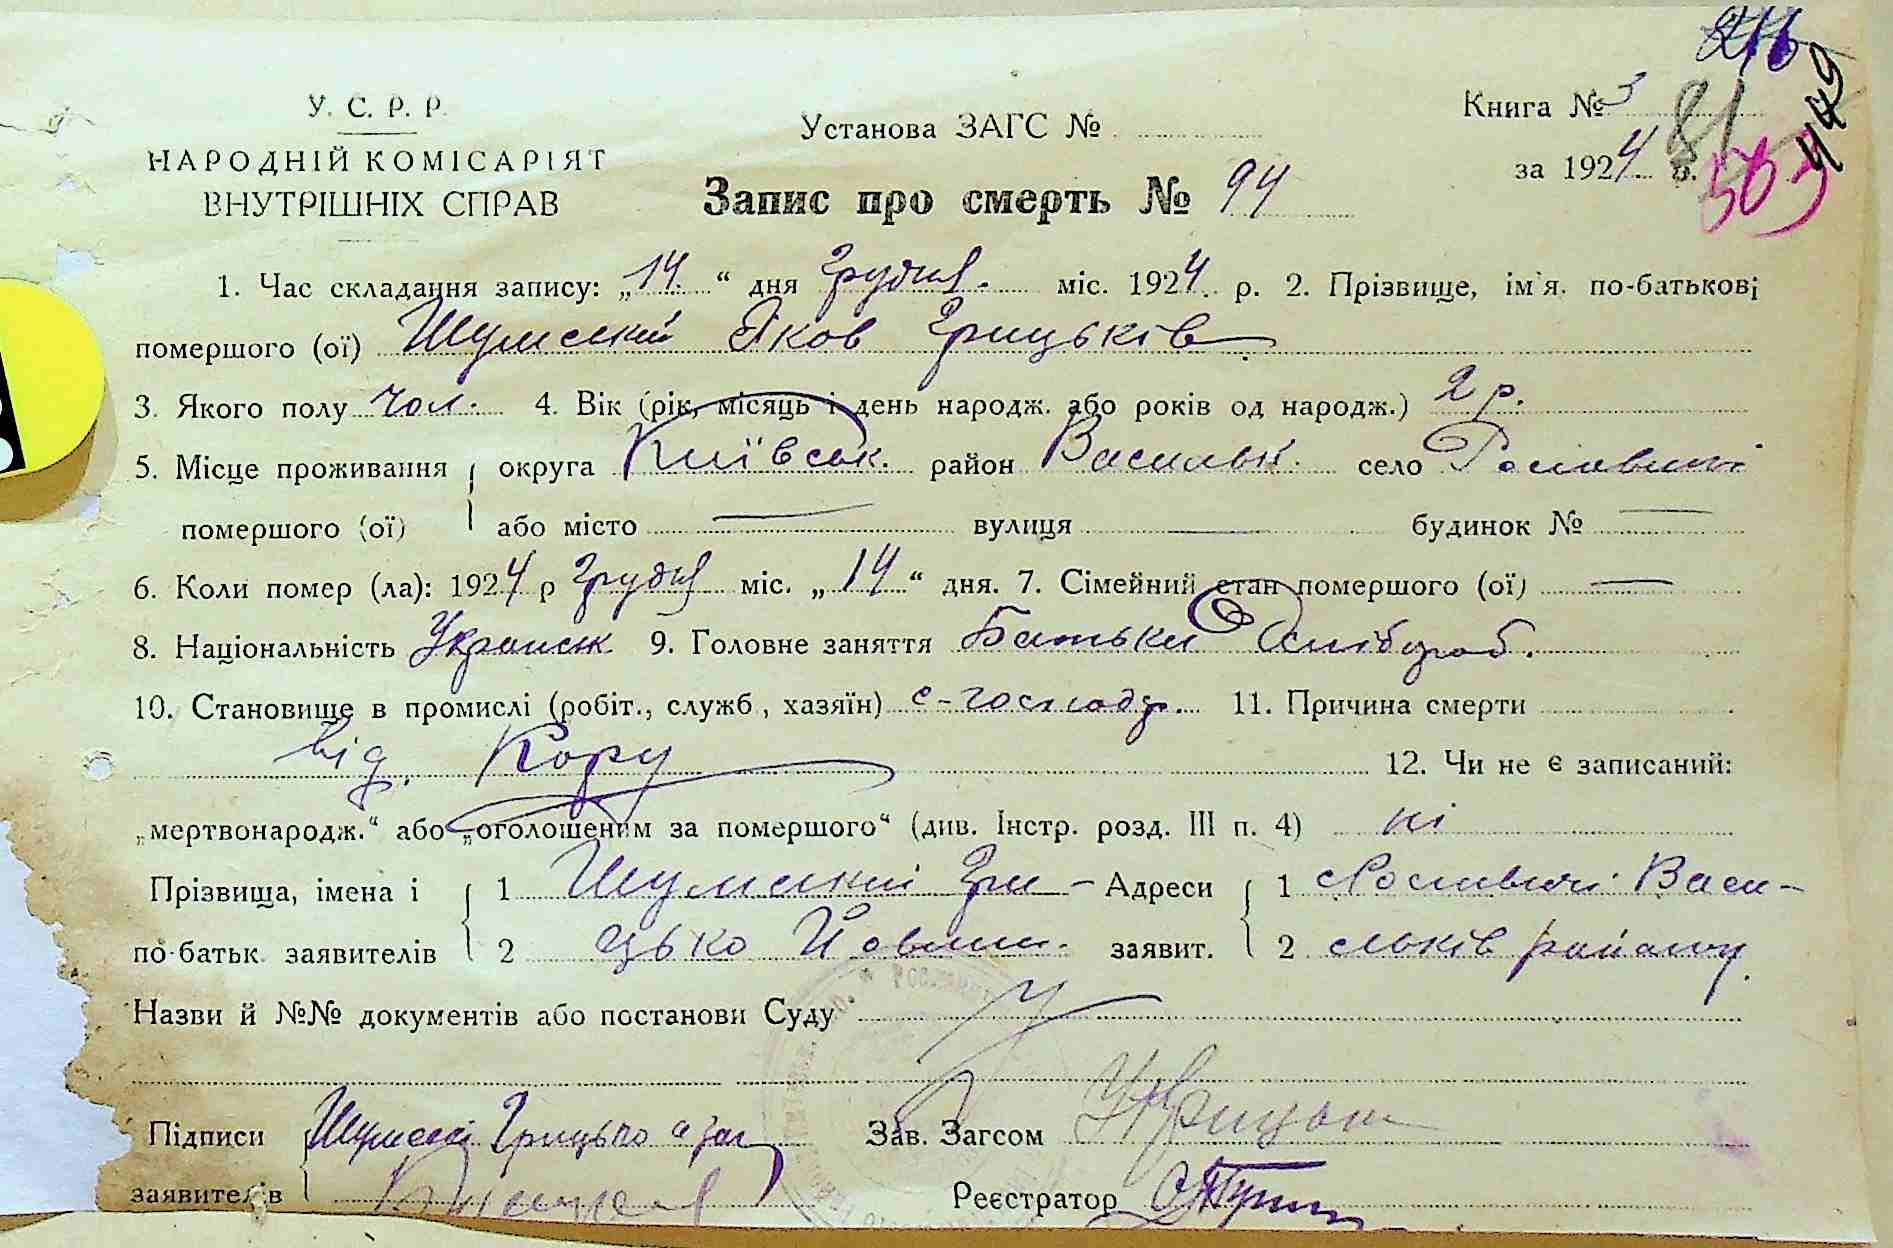 216
449
Книга № 3
81
У. С. Р. Р.
Установа ЗАГС №
НАРОДНІЙ КОМІСАРІЯТ
за 1924 р.
503
ВНУТРІШНІХ СПРАВ
Запис про смерть № 94
1. Час складання запису: „14.“ дня Грудня. міс. 1924 р. 2. Прізвище, ім'я. по-батькові
помершого (ої) Шумский Яков Грицьків
3. Якого полу чол. 4. Вік (рік, місяць і день народж. або років од народж.) 2 р.
5. Місце проживання округа Київськ. район Васильк. село Рославичі
помершого (ої) або місто — вулиця — будинок № —
6. Коли помер (ла): 1924 р Грудня міс. „14“ дня. 7. Сімейний стан помершого (ої) —
8. Національність Украінськ 9. Головне заняття Батьки Хлібороб.
10. Становище в промислі (робіт., служб, хазяїн) с-господр. 11. Причина смерти
від. Кору 12. Чи не є записаний:
„мертвонародж.“ або „оголошеним за помершого“ (див. Інстр. розд. III п. 4) ні
Прізвища, імена і 1 Шумский Гри- Адреси 1 с Рославичі Васи-
по-батьк. заявителів 2 цько Йовхим. заявит. 2 льків району.
Назви й №№ документів або постанови Суду
Підписи Грицько Зав. Загсом
заявителів Реєстратор